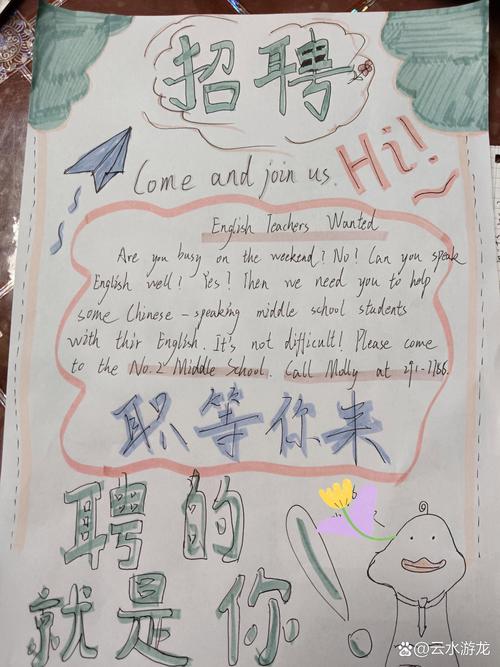 招聘
Hi!
Come and join us.
English Teachers Wanted
Are you busy on the weekend? No! Can you speak
English well? Yes? Then we need you to help
some Chinese-speaking middle school students
with thir English. It's not difficult! Please come
to the No.2 Middle School. Call Molly at 291-7766.
职等你来
聘的
就是你!
云水游龙